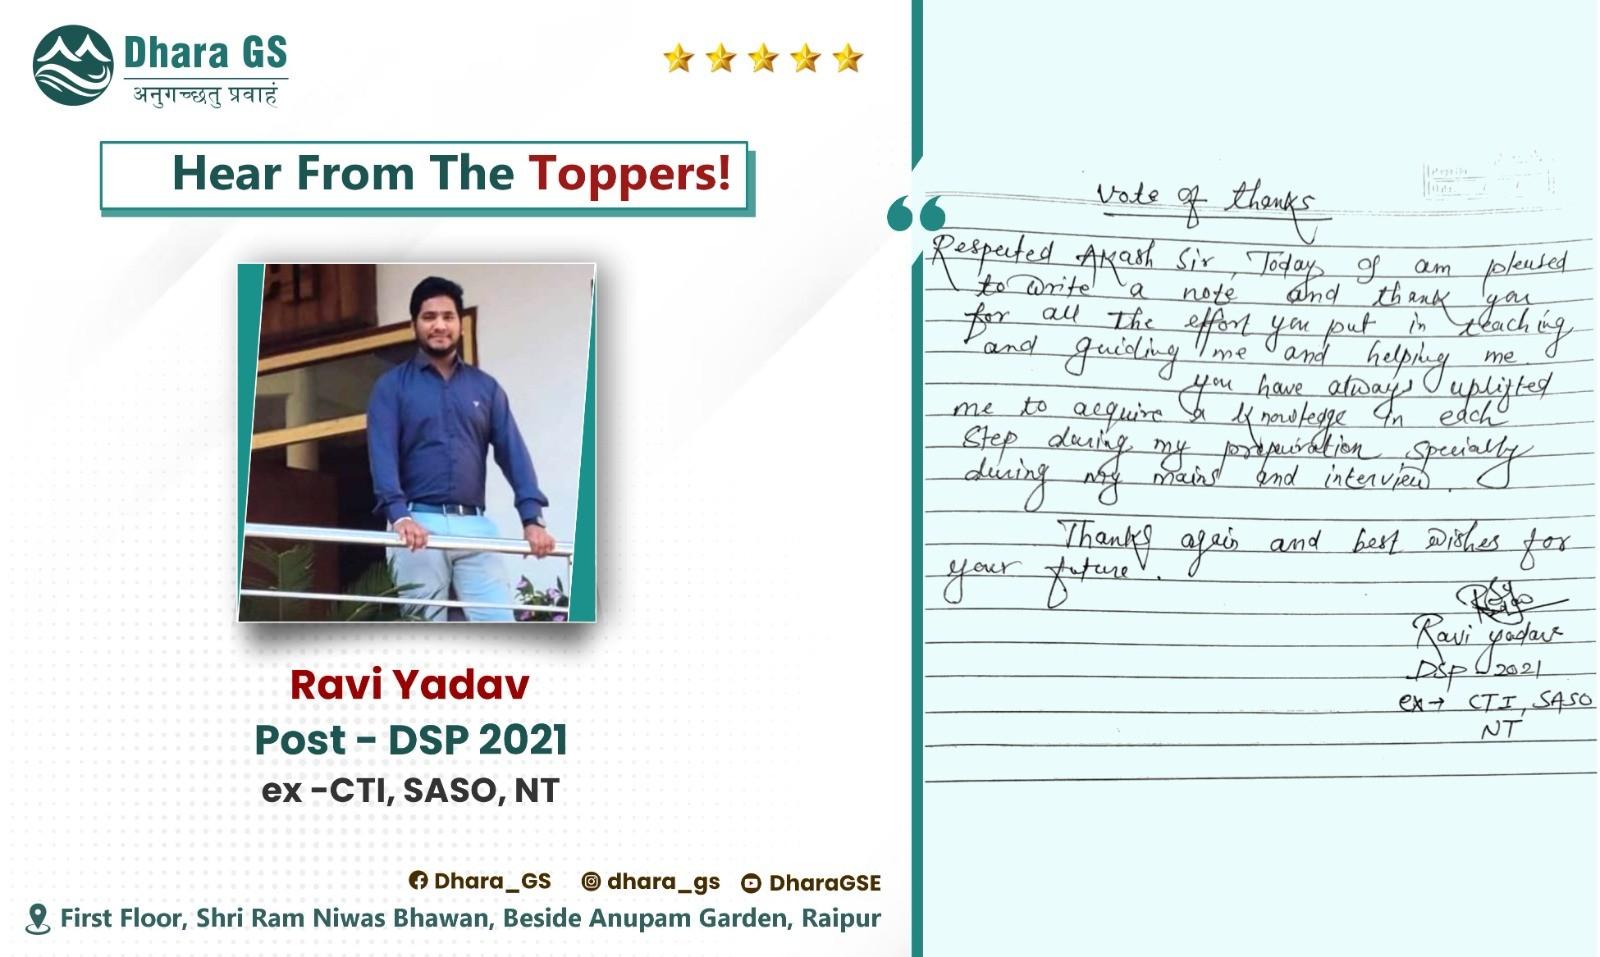 Dhara GS
अनुगच्छतु प्रवाहं
Hear From The Toppers!
Ravi Yadav
Post - DSP 2021
ex -CTI, SASO, NT
Dhara_GS dhara_gs DharaGSE
First Floor, Shri Ram Niwas Bhawan, Beside Anupam Garden, Raipur
Vote of thanks
Respected Akash Sir, Today I am pleased
to write a note and thank you
for all the effort you put in teaching
and guiding me and helping me.
you have always uplifted
me to acquire a knowledge in each
step during my preparation specially
during my mains and interview.
Thanks again and best wishes for
your future.
Ravi yadav
DSP 2021
ex→ CTI, SASO
NT